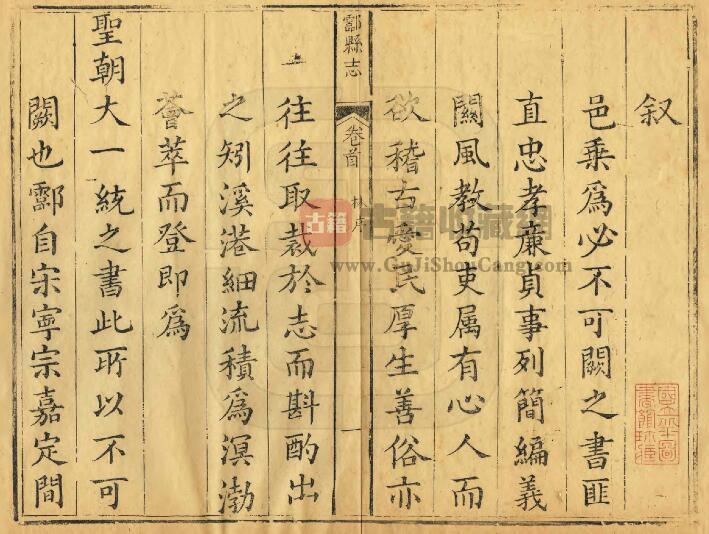 叙
邑乗爲必不可闕之書匪
直忠孝亷貞事列簡編義
關風教苟吏属有心人而
欲稽古愛民厚生善俗亦
酃縣志
卷首
林序
一
往往取裁於志而斟酌出
之矧溪港細流積爲溟渤
薈萃而登即爲
聖朝大一統之書此所以不可
闕也酃自宗寧宗嘉定間
古籍
古籍收藏網
www.GuJiShouCang.com